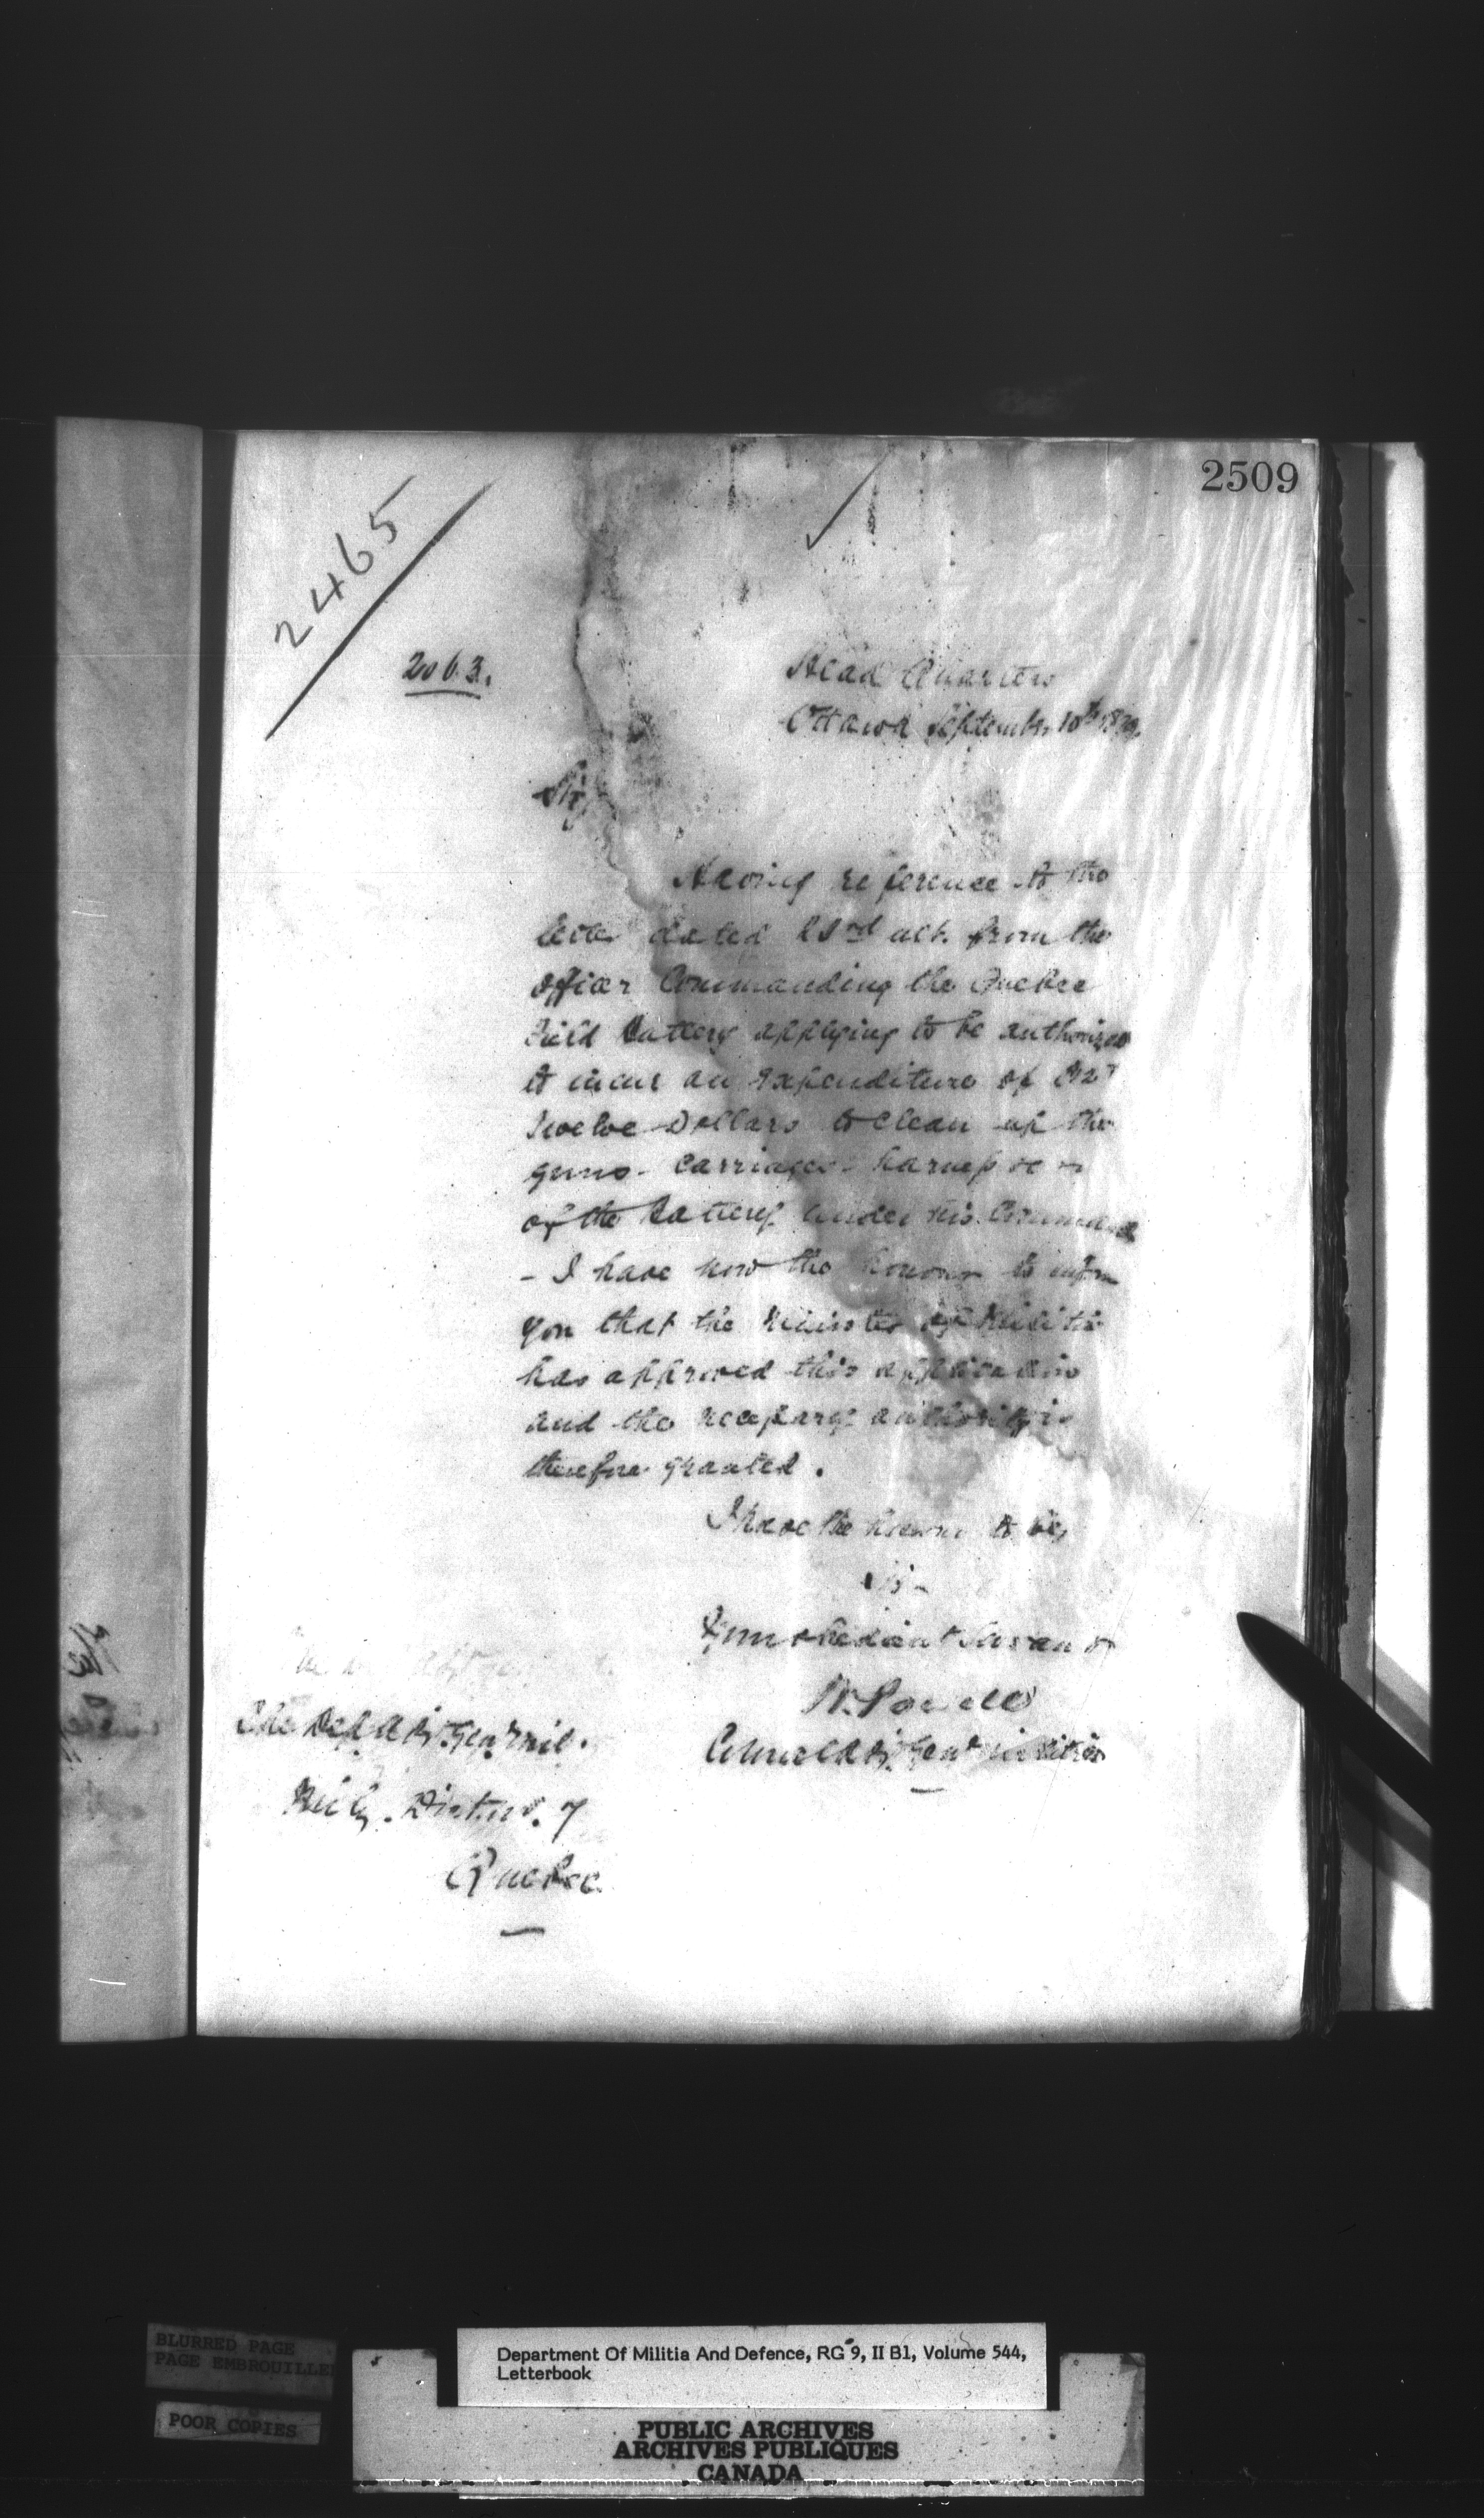 2509
2465
2063.
Head Quarters
Ottawa September 10th
Sir,
Having reference to the
letter dated 23rd ult. from the
officer Commanding the Quebec
Field Battery applying to be authorized
to incur an expenditure of
Twelve Dollars to clean up the
guns - carriages - harness &c
of the Battery under his Command
- I have now the honour to inform
you that the Minister of Militia
has approved this application
and the necessary authority is
therefore granted.
I have the honour to be,
Sir
Your obedient Servant
W. Powell
Colonel A dj. Genl Militia
The Dep. Adj. Gen. Mil.
Mily. Dist. No. 7
Quebec
BLURRED PAGE
PAGE EMBROUILLEE
POOR COPIES
Department Of Militia And Defence, RG 9, II B1, Volume 544,
Letterbook
PUBLIC ARCHIVES
ARCHIVES PUBLIQUES
CANADA